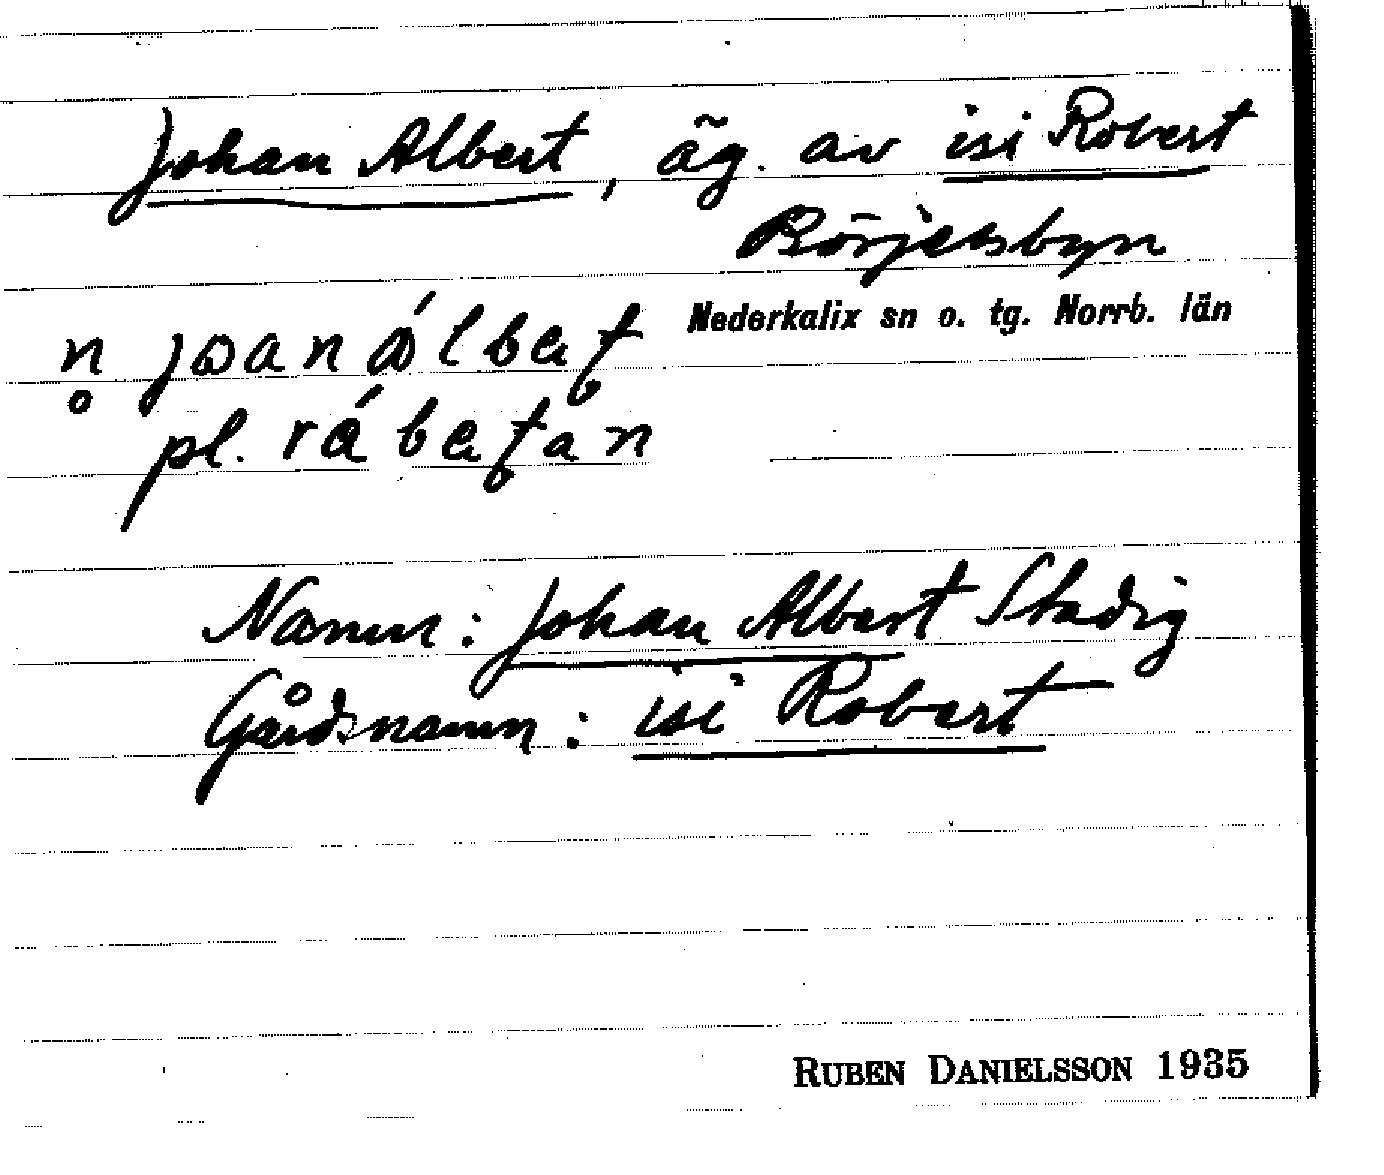 Johan Albert, äg. av isi Robert
Börjelsbyn
Nederkalix sn o. tg. Norrb. län
n̥ jωanálbeʈ
pl. rábeʈan
Namn: Johan Albert Stadig
Gårdsnamn: isi Robert
RUBEN DANIELSSON 1935